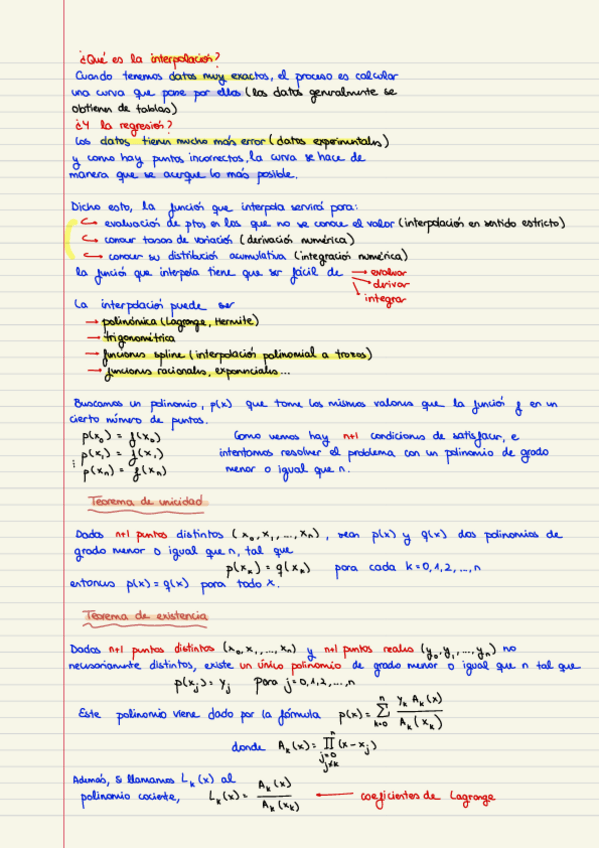 ¿Qué es la interpolación?
Cuando tenemos datos muy exactos, el proceso es calcular
una curva que pone por ellos (los datos generalmente se
obtienen de tablas)
¿Y la regresión?
Los datos tienen mucho más error (datos experimentales)
y como hay puntos incorrectos, la curva se hace de
manera que se acerque lo más posible.
Dicho esto, la función que interpola servirá para:
↪ evaluación de ptos en los que no se conoce el valor (interpolación en sentido estricto)
↪ conocer tasas de variación (derivación numérica)
↪ conocer su distribución acumulativa (integración numérica)
la función que interpola tiene que ser fácil de → evaluar
derivar
integrar
La interpolación puede ser
→ polinómica (Lagrange, Hermite)
→ trigonométrica
→ funciones spline (interpolación polinomial a trozos)
→ funciones racionales, exponenciales...
Buscamos un polinomio, p(x) que tome los mismos valores que la función f en un
cierto número de puntos.
p(x₀) = f(x₀) Como vemos hay n+1 condiciones de satisfacer, e
p(x₁) = f(x₁) intentamos resolver el problema con un polinomio de grado
⋮ p(xₙ) = f(xₙ) menor o igual que n.
Teorema de unicidad
Dados n+1 puntos distintos (x₀, x₁, ..., xₙ), sean p(x) y q(x) dos polinomios de
grado menor o igual que n, tal que
p(xₖ) = q(xₖ) para cada k=0,1,2,...,n
entonces p(x) = q(x) para todo x.
Teorema de existencia
Dados n+1 puntos distintos (x₀, x₁, ..., xₙ) y n+1 puntos reales (y₀, y₁, ..., yₙ) no
necesariamente distintos, existe un único polinomio de grado menor o igual que n tal que
p(xⱼ) = yⱼ para j=0,1,2,...,n
Este polinomio viene dado por la fórmula p(x) = Σ_{k=0}^{n} yₖ Aₖ(x) / Aₖ(xₖ)
donde Aₖ(x) = ∏_{j=0, j≠k}^{n} (x - xⱼ)
Además, si llamamos Lₖ(x) al
polinomio cociente, Lₖ(x) = Aₖ(x) / Aₖ(xₖ) ← coeficientes de Lagrange